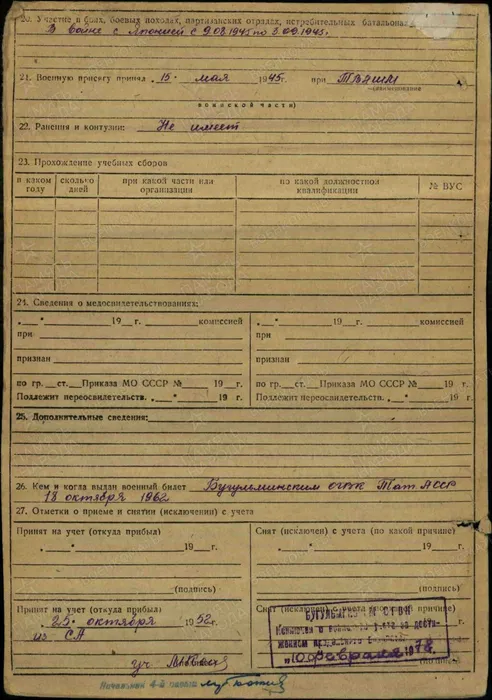 20. Участие в боях, боевых походах, партизанских отрядах, истребительных батальонах
В войне с Японией с 9.08.1945 по 3.09.1945г.
21. Военную присягу принял „15“ мая 1945г. при ТВАШМ
(наименование
воинской части)
22. Ранения и контузии: Не имеет
23. Прохождение учебных сборов
в каком году сколько дней при какой части или организации по какой должностной квалификации № ВУС
24. Сведения о медосвидетельствованиях:
„__“ 19__г. комиссией „__“ 19__г. комиссией
при при
признан признан
по гр.__ст.__Приказа МО СССР №__ 19__г. по гр.__ст.__Приказа МО СССР №__ 19__г.
Подлежит переосвидетельств. „__“ 19__г. Подлежит переосвидетельств. „__“ 19__г.
25. Дополнительные сведения:
26. Кем и когда выдан военный билет Бугульминским ОГВК Тат. АССР
18 октября 1962
27. Отметки о приеме и снятии (исключении) с учета
Принят на учет (откуда прибыл) Снят (исключен) с учета (по какой причине)
„__“ 19__г. „__“ 19__г.
(подпись) (подпись)
Принят на учет (откуда прибыл) Снят (исключен) с учета (по какой причине)
„25“ октября 1952г.
из СА
БУГУЛЬМИНСКИЙ ОГВК
Исключен с воинского учета по достижении предельного возраста
„10“ февраля 1978г.
уч.
(подпись)
Начальник 4-й части